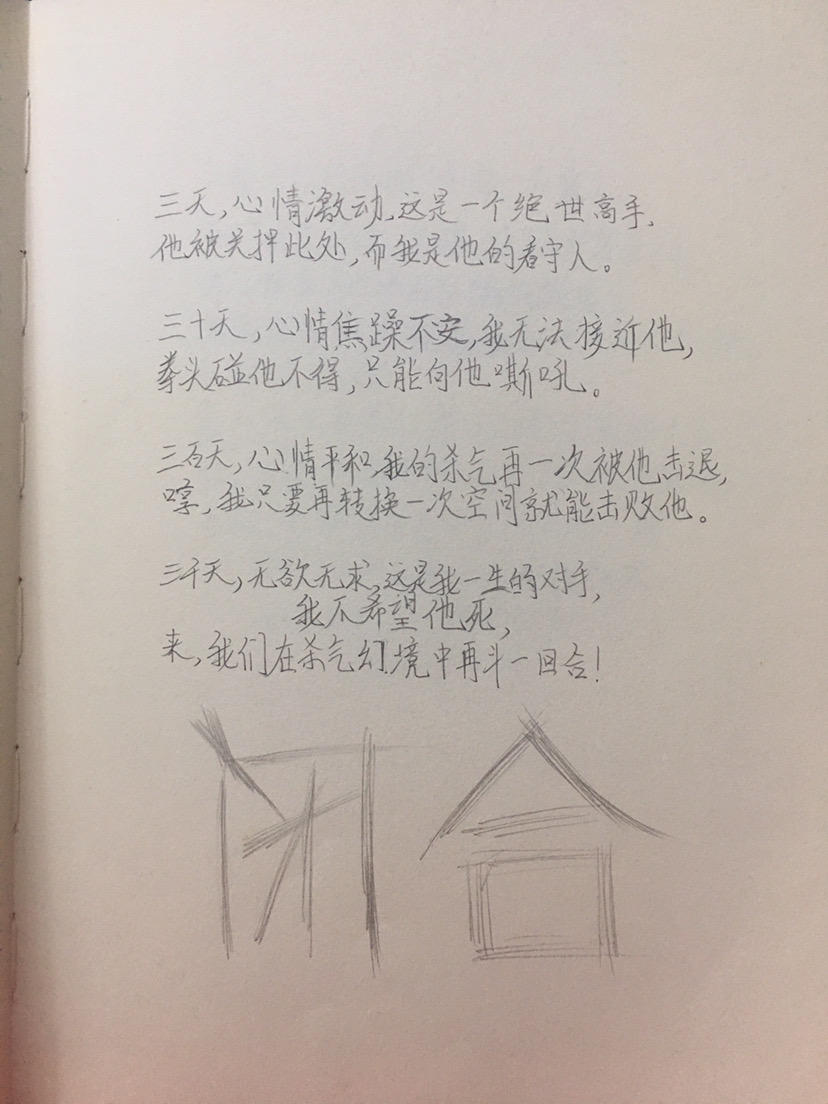 三天，心情激动，这是一个绝世高手，
他被关押此处，而我是他的看守人。
三十天，心情焦躁不安，我无法接近他，
拳头碰他不得，只能向他嘶吼。
三百天，心情平和，我的杀气再一次被他击退，
哼，我只要再转换一次空间就能击败他。
三千天，无欲无求，这是我一生的对手，
我不希望他死，
来，我们在杀气幻境中再斗一回合！
闭合